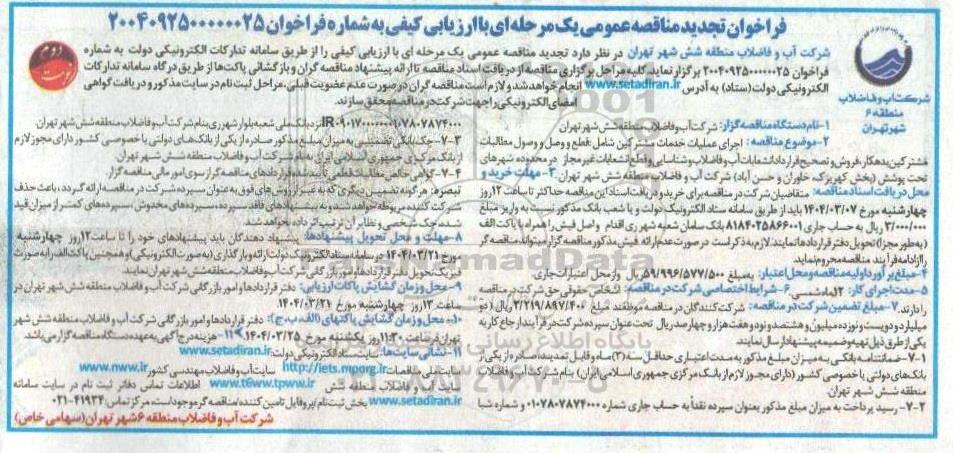 فراخوان تجدید مناقصه عمومی یک مرحله ای با ارزیابی کیفی به شماره فراخوان ۲۰۰۴۰۹۲۵۰۰۰۰۰۰۲۵
شرکت آب و فاضلاب
منطقه ۶
شهر تهران
نوبت دوم
شرکت آب و فاضلاب منطقه شش شهر تهران در نظر دارد تجدید مناقصه عمومی یک مرحله ای با ارزیابی کیفی را از طریق سامانه تدارکات الکترونیکی دولت به شماره
فراخوان ۲۰۰۴۰۹۲۵۰۰۰۰۰۰۲۵ برگزار نماید. کلیه مراحل برگزاری مناقصه از دریافت اسناد مناقصه تا ارائه پیشنهاد مناقصه گران و بازگشائی پاکت‌ها از طریق درگاه سامانه تدارکات
الکترونیکی دولت (ستاد) به آدرس www.setadiran.ir انجام خواهد شد و لازم است مناقصه گران در صورت عدم عضویت قبلی، مراحل ثبت نام در سایت مذکور و دریافت گواهی
امضای الکترونیکی را جهت شرکت در مناقصه محقق سازند.
۱-نام دستگاه مناقصه گزار: شرکت آب و فاضلاب منطقه شش شهر تهران
۲-موضوع مناقصه: اجرای عملیات خدمات مشترکین شامل قطع و وصل و وصول مطالبات
مشترکین بدهکار، فروش و تصحیح قرارداد انشعابات آب و فاضلاب و شناسایی و قطع انشعابات غیر مجاز در محدوده شهرهای
تحت پوشش (بخش کهریزک، خاوران و حسن آباد) شرکت آب و فاضلاب منطقه شش شهر تهران ۳- مهلت خرید و
محل دریافت اسناد مناقصه: متقاضیان شرکت در مناقصه برای خرید و دریافت اسناد این مناقصه حداکثر تا ساعت ۱۲ روز
چهارشنبه مورخ ۱۴۰۴/۰۳/۰۷ باید از طریق سامانه ستاد الکترونیک دولت و یا شعب بانک مذکور نسبت به واریز مبلغ
۳/۰۰۰/۰۰۰ ریال به حساب جاری ۸۱۸۴۰۲۵۸۶۶۰۰۱ بانک سامان شعبه شهر ری اقدام و اصل فیش را همراه با پاکت الف
(به طور مجزا) تحویل دفتر قراردادها نمایند. لازم به ذکر است در صورت عدم ارائه فیش مذکور مناقصه گزار میتواند مناقصه گر
را از ادامه فرآیند مناقصه محروم نماید.
۴-مبلغ برآورد اولیه مناقصه و محل اعتبار: به مبلغ ۵۹/۹۹۶/۵۷۷/۵۰۰ ریال و از محل اعتبارات جاری.
۵-مدت اجرای کار: ۱۲ ماه شمسی ۶- شرایط اختصاصی شرکت در مناقصه: اشخاص حقوقی حق شرکت در مناقصه
را دارند. ۷- مبلغ تضمین شرکت در مناقصه: شرکت کنندگان در مناقصه موظفند مبلغ ۳/۲۱۹/۸۹۷/۴۰۰ ریال (دو
میلیارد و دویست و نوزده میلیون و هشتصد و نود و هفت هزار و چهارصد ریال تحت عنوان سپرده شرکت در فرآیند ارجاع کار به
یکی از طرق ذیل تهیه و ضمیمه پیشنهاد ارسال نمایند.
۷-۱- ضمانتنامه بانکی به میزان مبلغ مذکور به مدت اعتباری حداقل سه (۳) ماه و قابل تمدید، صادره از یکی از
بانک‌های دولتی یا خصوصی کشور (دارای مجوز لازم از بانک مرکزی جمهوری اسلامی ایران) بنام شرکت آب و فاضلاب
منطقه شش شهر تهران.
۷-۲- رسید پرداخت به میزان مبلغ مذکور بعنوان سپرده نقداً به حساب جاری شماره ۰۱۰۷۸۰۷۸۷۴۰۰۰ و شماره شبا
نزد بانک ملی شعبه بلوار شهرری بنام شرکت آب و فاضلاب منطقه شش شهر تهران
۷-۳- چک بانکی تضمینی به میزان مبلغ مذکور صادره از یکی از بانک‌های دولتی یا خصوصی کشور دارای مجوز لازم
از بانک مرکزی جمهوری اسلامی ایران بنام شرکت آب و فاضلاب منطقه شش شهر تهران
۷-۴- گواهی خالص مطالبات قطعی تأیید شده قراردادهای مناقصه گر از سوی امور مالی مناقصه گزار.
تبصره: هرگونه تضمین دیگری که به غیر از روش‌های فوق به عنوان سپرده شرکت در مناقصه ارائه گردد، باعث حذف
شرکت کننده مربوطه خواهد شد و به پیشنهادهای فاقد سپرده، سپرده‌های مخدوش، سپرده‌های کمتر از میزان قید
شده، چک شخصی و نظایر آن ترتیب اثر داده نخواهد شد.
۸-مهلت و محل تحویل پیشنهادها: پیشنهاد دهندگان باید پیشنهادهای خود را تا ساعت ۱۲ روز چهارشنبه
مورخ ۱۴۰۴/۰۳/۲۱ در سامانه ستاد الکترونیک دولت ارائه و بارگذاری (به صورت الکترونیکی) و همچنین پاکت الف را به صورت
فیزیک تحویل دفتر قراردادها و امور بازرگانی شرکت آب و فاضلاب منطقه شش شهر تهران نمایند.
۹-محل و زمان گشایش پاکات ارزیابی: دفتر قراردادها و امور بازرگانی شرکت آب و فاضلاب منطقه شش شهر تهران در
ساعت ۱۳ روز چهارشنبه مورخ ۱۴۰۴/۰۳/۲۱
۱۰-محل و زمان گشایش پاکتهای (الف، ب، ج): دفتر قراردادها و امور بازرگانی شرکت آب و فاضلاب منطقه شش شهر
تهران در ساعت ۱۱:۳۰ روز یکشنبه مورخ ۱۴۰۴/۰۳/۲۵. ۱۱- هزینه درج آگهی به عهده دستگاه مناقصه گزار می باشد.
۱۱-نشانی سایت‌ها: سایت ستاد الکترونیکی دولت www.setadiran.ir
سایت ملی مناقصات http://iets.mporg.ir سایت آب و فاضلاب مهندسی کشور www.nww.ir
سایت آب و فاضلاب منطقه شش www.t6ww.tpww.ir اطلاعات تماس دفاتر ثبت نام در سایت سامانه
www.setadiran.ir بخش ثبت نام/ پروفایل تامین کننده/مناقصه گر موجود است. مرکز تماس: ۴۱۹۳۴-۰۲۱
شرکت آب و فاضلاب منطقه ۶ شهر تهران (سهامی خاص)